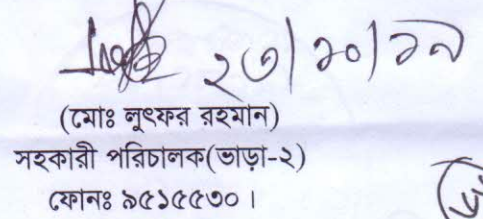 ২৩/১০/১৯
(মোঃ লুৎফর রহমান)
সহকারী পরিচালক(ভাড়া-২)
ফোনঃ ৯৫১৫৫৩০।